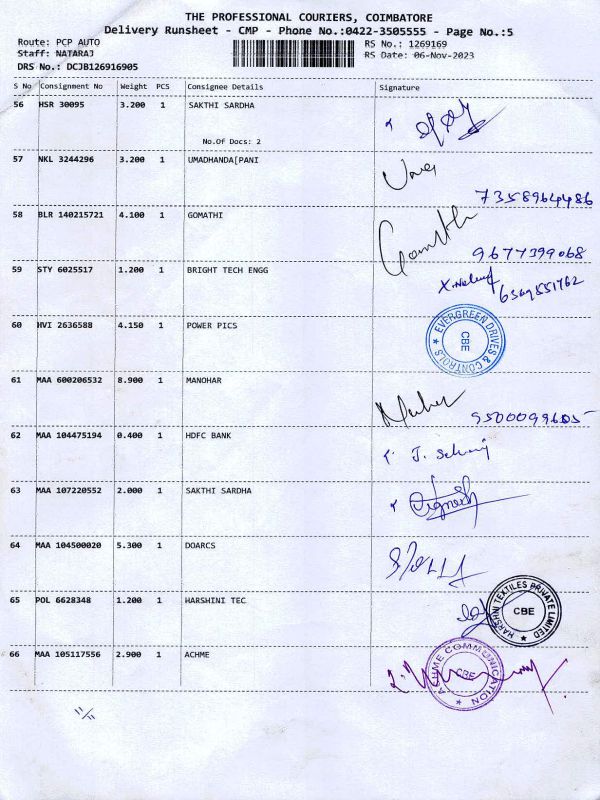 THE PROFESSIONAL COURIERS, COIMBATORE
Delivery Runsheet - CMP - Phone No.:0422-3505555 - Page No.:5
Route: PCP AUTO RS No.: 1269169
Staff: NATARAJ RS Date: 06-Nov-2023
DRS No.: DCJB126916905
S No Consignment No Weight PCS Consignee Details Signature
56 HSR 30095 3.200 1 SAKTHI SARDHA
No.Of Docs: 2
57 NKL 3244296 3.200 1 UMADHANDA[PANI Uma
7358964486
58 BLR 140215721 4.100 1 GOMATHI Gomathi
9677399068
59 STY 6025517 1.200 1 BRIGHT TECH ENGG
6369551762
60 HVI 2636588 4.150 1 POWER PICS EVERGREEN DRIVES & CONTROLS ★ CBE
61 MAA 600206532 8.900 1 MANOHAR
9500099605
62 MAA 104475194 0.400 1 HDFC BANK
63 MAA 107220552 2.000 1 SAKTHI SARDHA Vignesh
64 MAA 104500020 5.300 1 DOARCS
65 POL 6628348 1.200 1 HARSHINI TEC HARSHNI TEXTILES PRIVATE LIMITED ★ CBE
66 MAA 105117556 2.900 1 ACHME ACHME COMMUNICATION ★ CBE
11/11